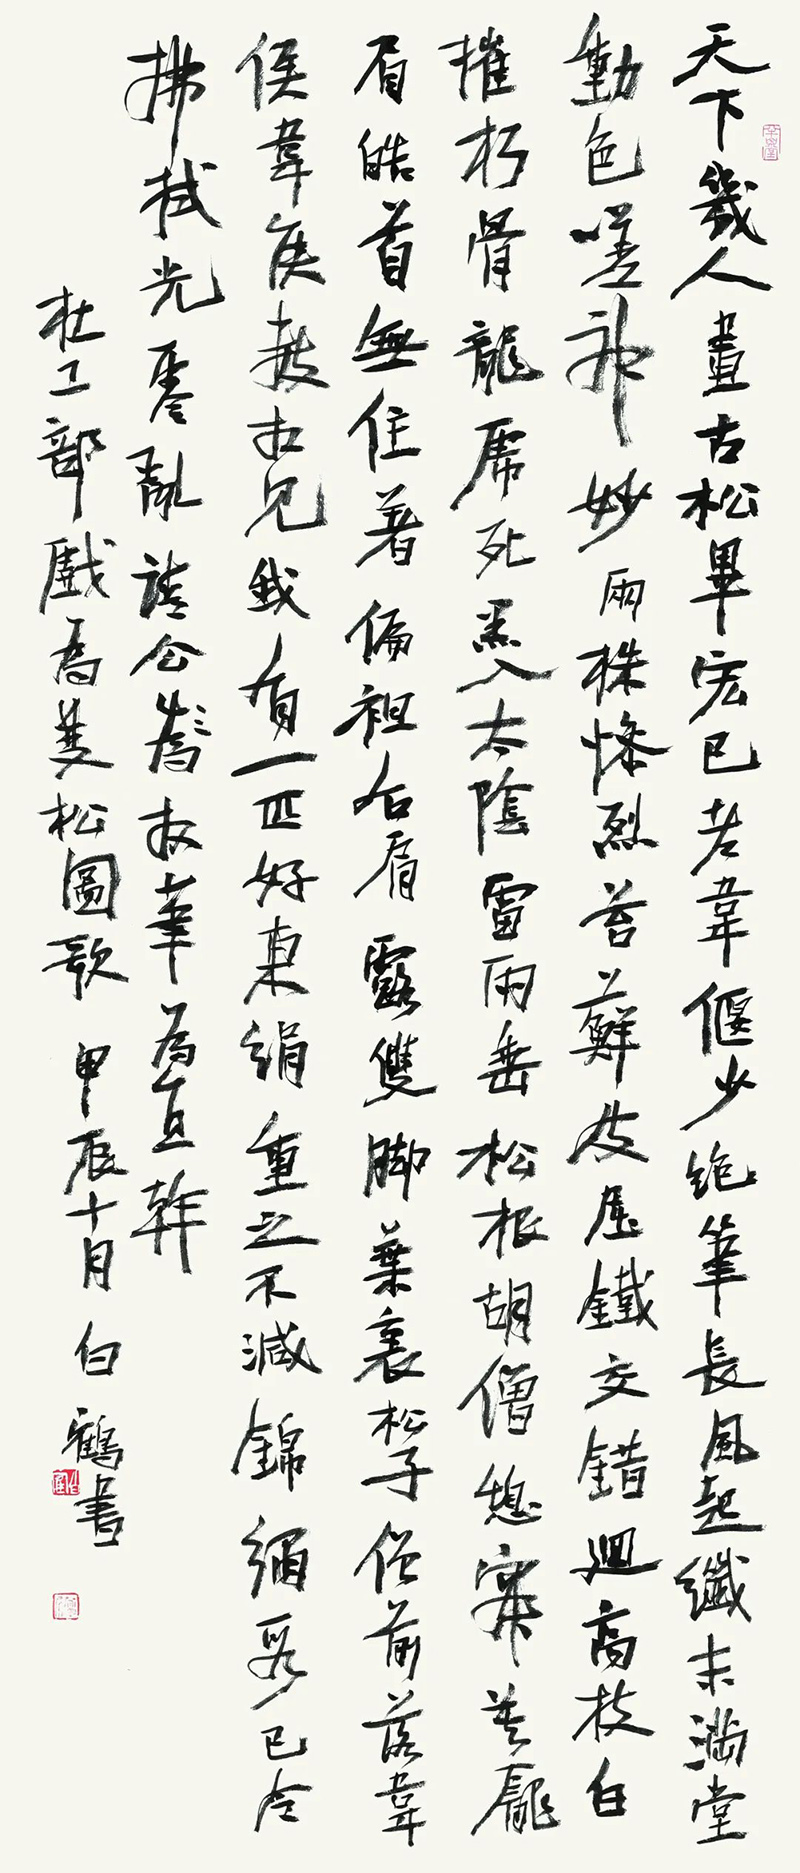 天下幾人畫古松畢宏已老韋偃少絕筆長風起纖末滿堂
動色嗟神妙兩株慘烈苔蘚皮屈鐵交錯迴高枝白
摧朽骨龍虎死黑入太陰雷雨垂松根胡僧憩寂莫龐
眉皓首無住著偏袒右肩露雙脚葉裏松子僧前落韋
侯韋侯數相見我有一匹好東絹重之不減錦繡段已令
拂拭光零亂請公為放筆為直幹
杜工部戲為雙松圖歌 甲辰十月 白鶴書